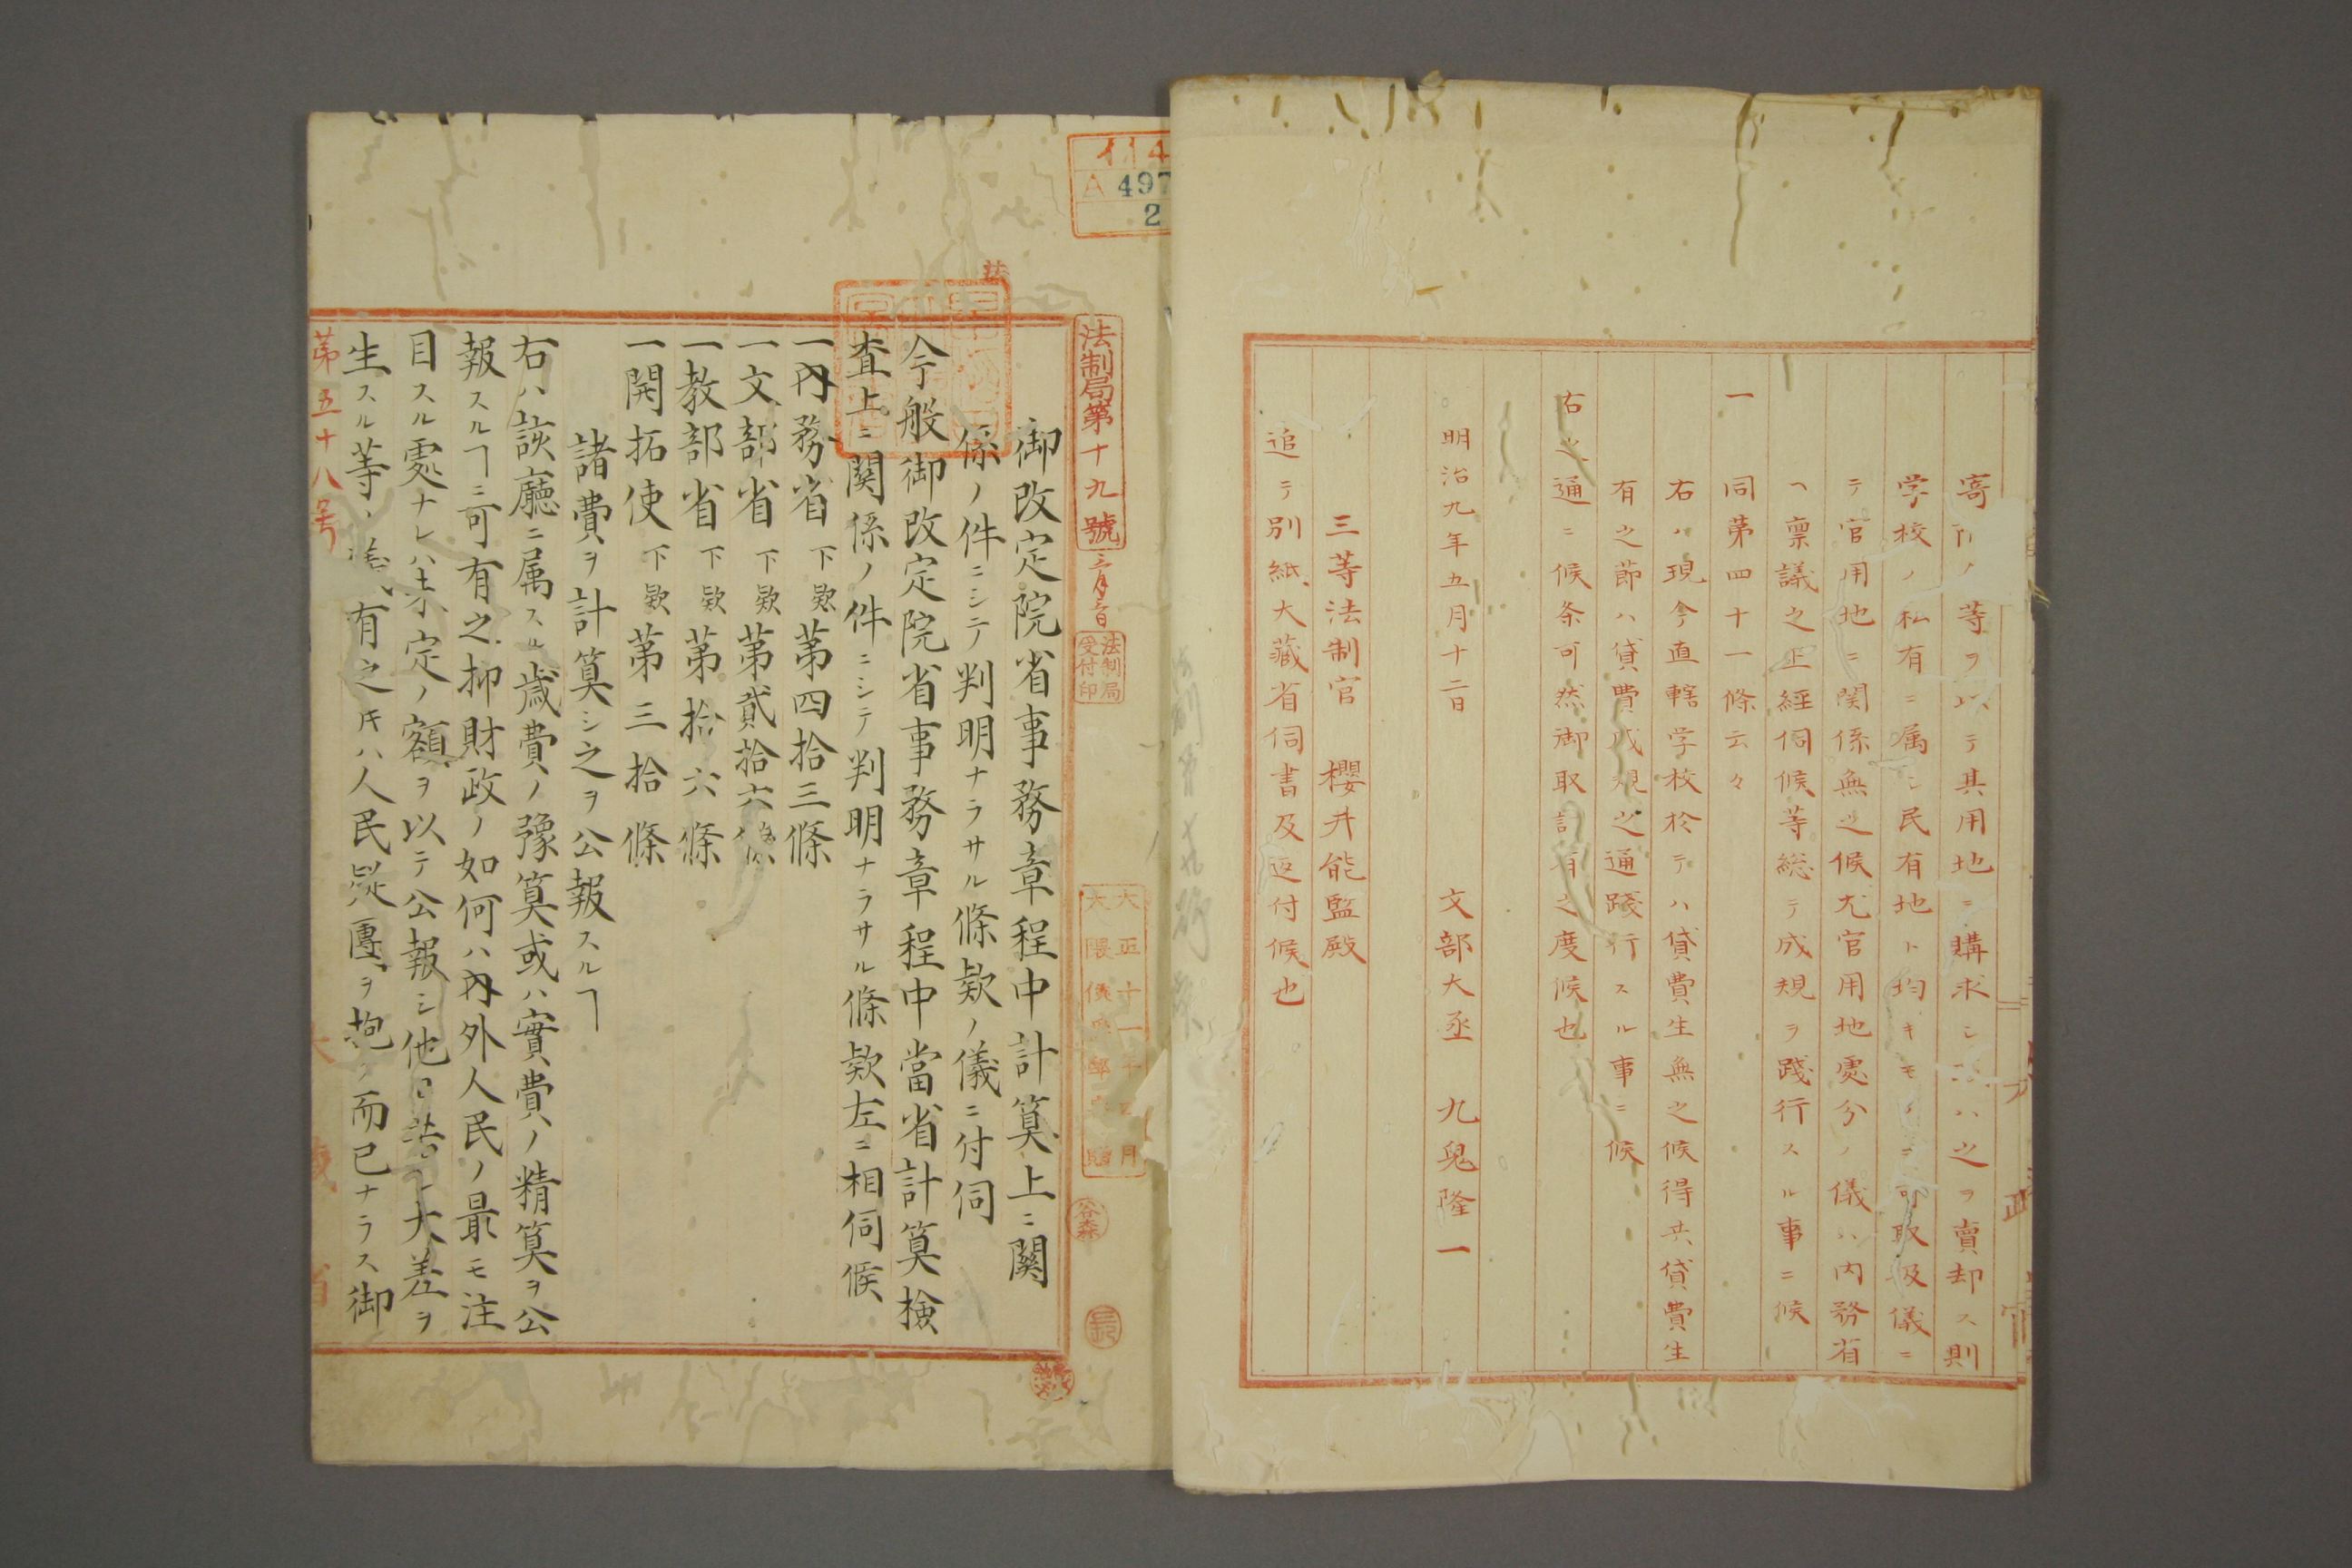 等ヲ
テ其用地ニ購求シ
ハ之ヲ賣却ス則
学校ノ私有ニ属シ民有地ト均キモノニ
可取扱儀ニ
テ官用地ニ関係無之候尤官用地處分ノ儀ハ内務省
ヘ禀議之上経伺候等総テ成規ヲ踐行スル事ニ候
一 同第四十一條云々
右ハ現今直轄学校於テハ貸費生無之候得共貸費生
有之節ハ貸費成規之通踐行スル事ニ候
右之通ニ候条可然御取計有之度候也
明治九年五月十二日 文部大丞 九鬼隆一
三等法制官 櫻井能監殿
追テ別紙大藏省伺書及返付候也
イ14
A 497
2
法制局第十九號
法制局受付印
大正十一年
月
大隈
御改定院省事務章程中計算上ニ關
係ノ件ニシテ判明ナラサル條欵ノ儀ニ付伺
今般御改定院省事務章程中當省計算檢
査上ニ関係ノ件ニシテ判明ナラサル條欵左ニ相伺候
一內務省 下欵 第四拾三條
一文部省 下欵 第貳拾六條
一教部省 下欵 第拾六條
一開拓使 下欵 第三拾條
諸費ヲ計算シ之ヲ公報スルヿ
右ハ該廳ニ属スル歳費ノ豫算或ハ實費ノ精算ヲ公
報スルヿニ可有之抑財政ノ如何ハ內外人民ノ最モ注
目スル處ナレハ未定ノ額ヲ以テ公報シ他日
大差ヲ
生スル等ノ
有之トキハ人民疑團ヲ抱ク而已ナラス御
第五十八号
大藏省